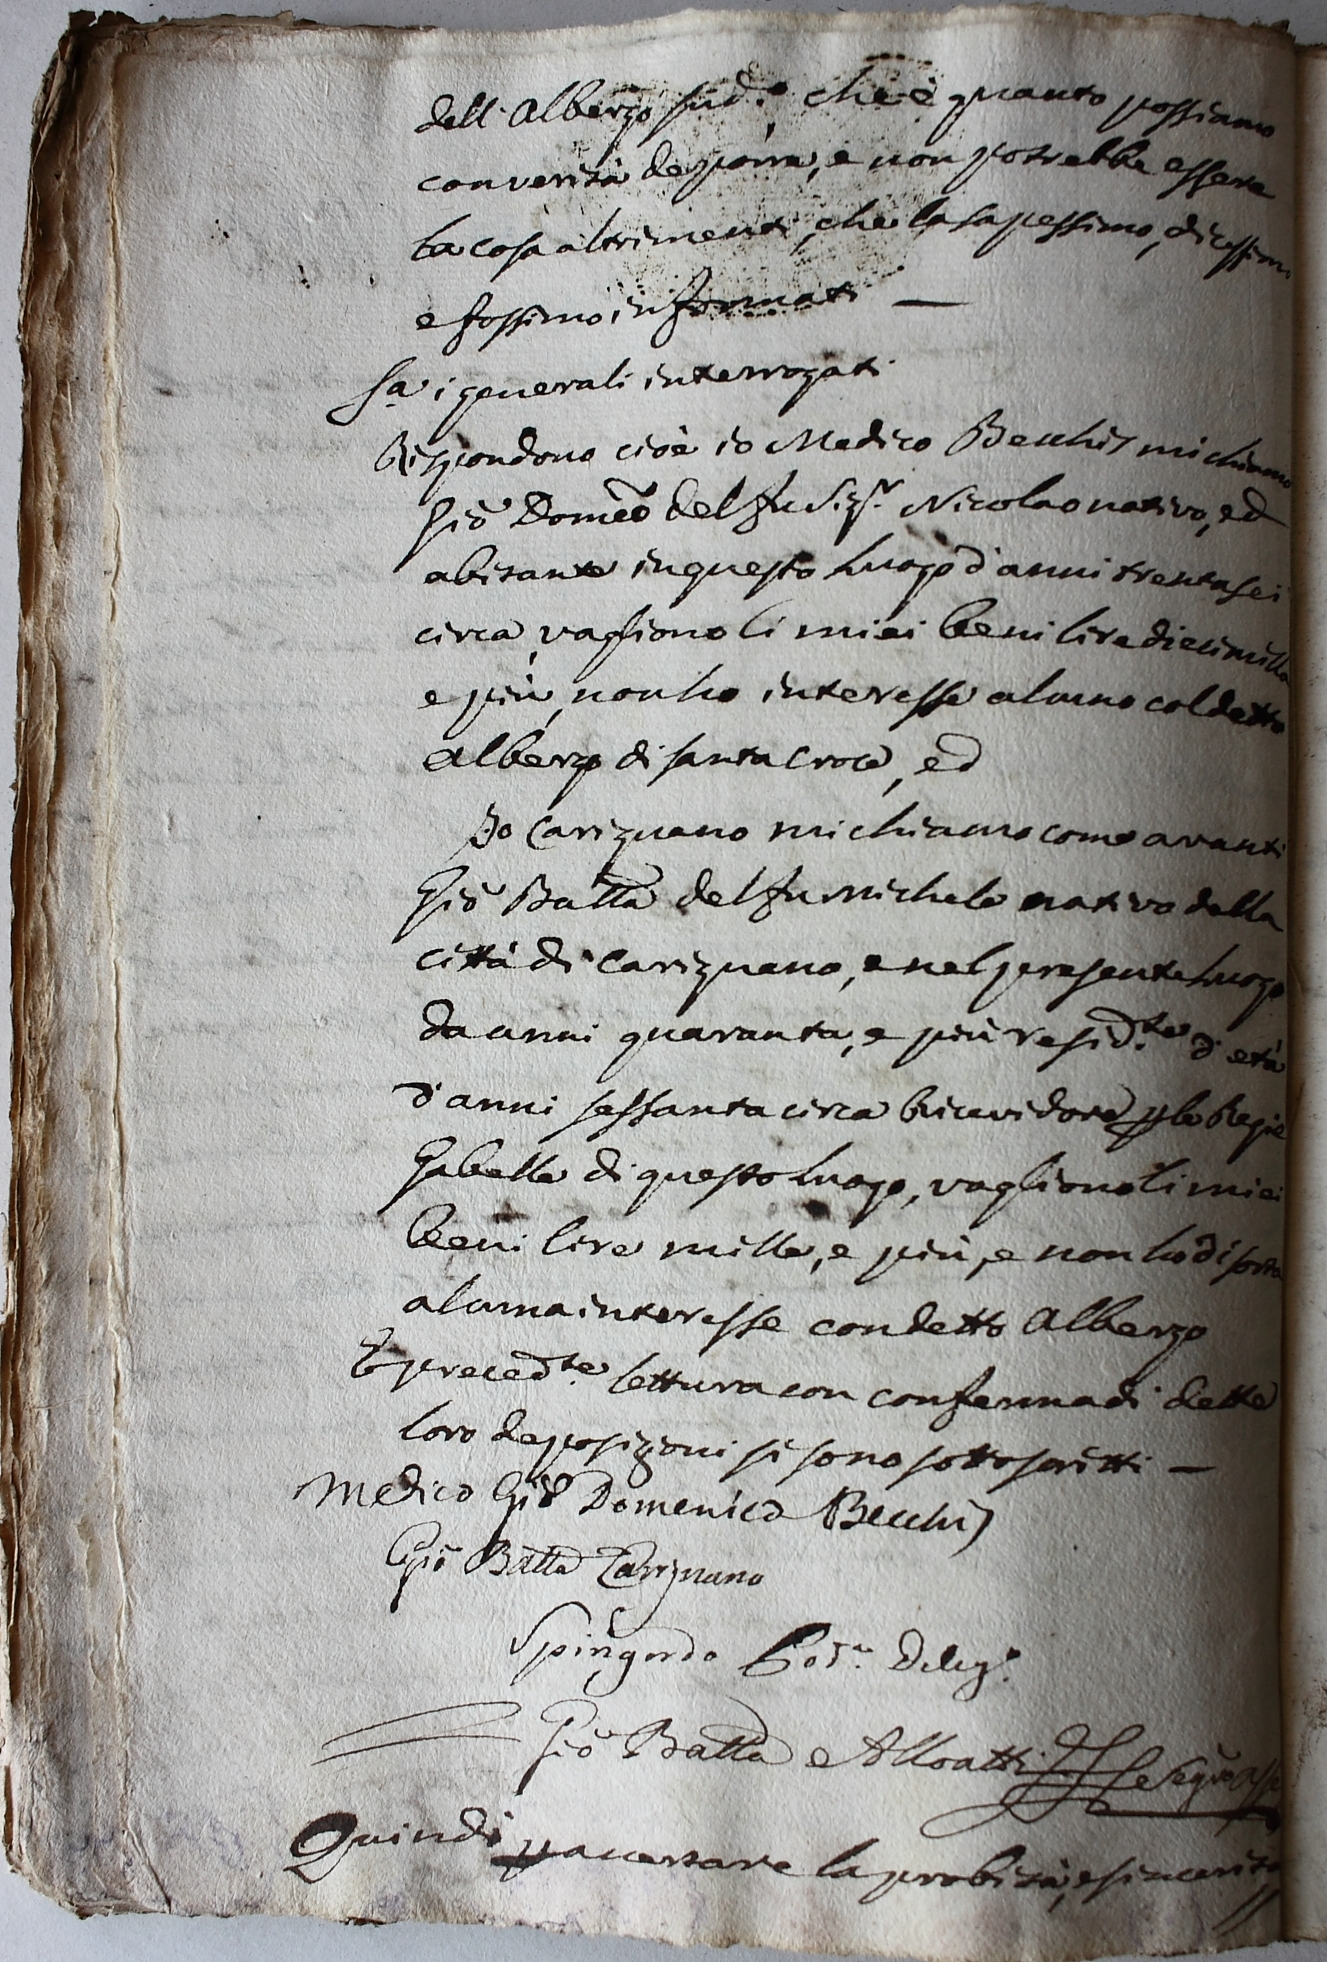 dell'Albergo sud.° che è quanto possiamo
con verità deporre, e non potrebbe essere
la cosa altrimenti, che la sapessimo, dicessimo
e fossimo informati —
Sa i generali interrogati
Rispondono cioè io Medico Becchis mi chiamo
Giõ Domeõ del fu Sig.r Nicolao nativo, ed
abitante in questo luogo d'anni trentasei
circa, vagliono li miei beni lire diecimilla
e più, non ho interesse alcuno col detto
albergo di santa Croce, ed
Io Carignano mi chiamo come avanti
Giõ Batta del fu Michele nativo della
città di Carignano, e nel presente luogo
da anni quaranta, e più resid.te d'età
d'anni sessanta circa Ricevidore p le Regie
Gabelle di questo luogo, vagliono li miei
beni lire mille, e più, e non ho di sorta
alcuna interesse con detto Albergo
E preced.te lettura con conferma di dette
loro deposizioni si sono sottoscritti —
Medico Giõ Domenico Becchis
Giõ Batta Carignano
Spingardo Deleg.°
Giõ Batta Alloatti Seg.ro
Quindi p accertare la probità, e sincerità